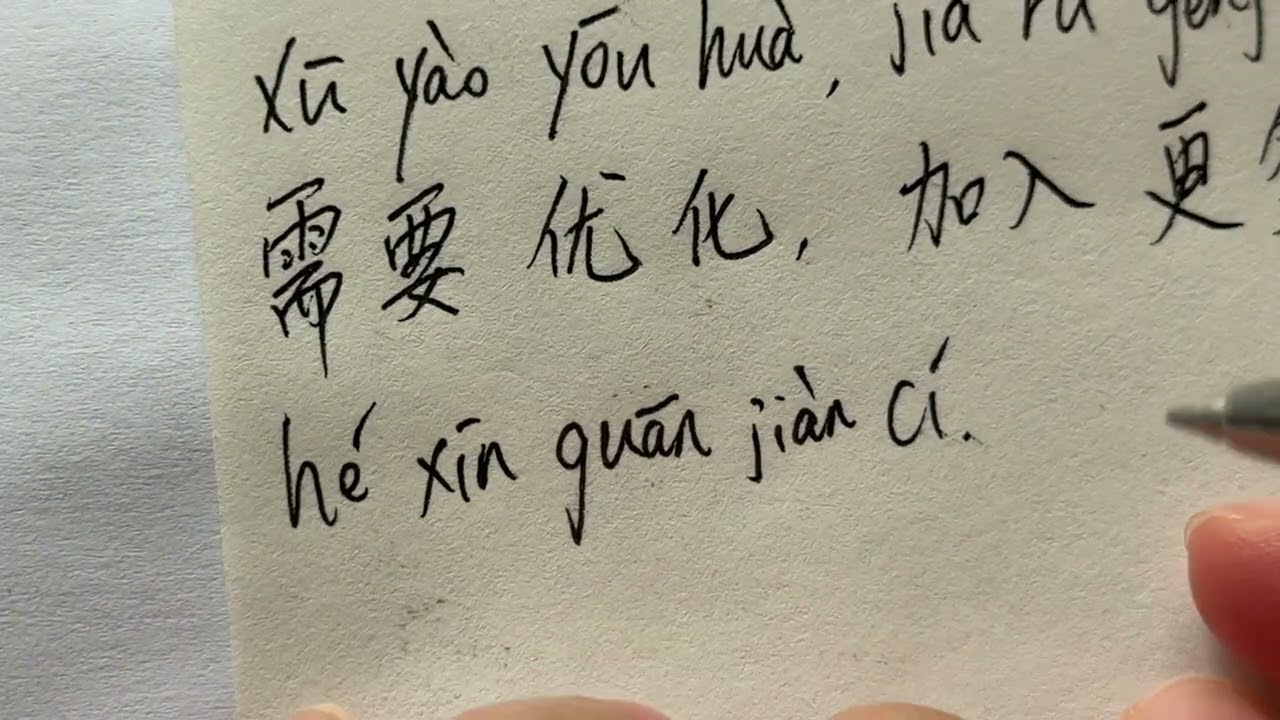 xū yào yōu huà, jiā rù gèng
需要优化, 加入更
hé xīn guān jiàn cí.